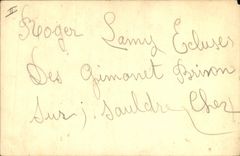 II
Roger Lamy Ecluses
Des Gimonet Brinon
Sur; Sauldre Cher